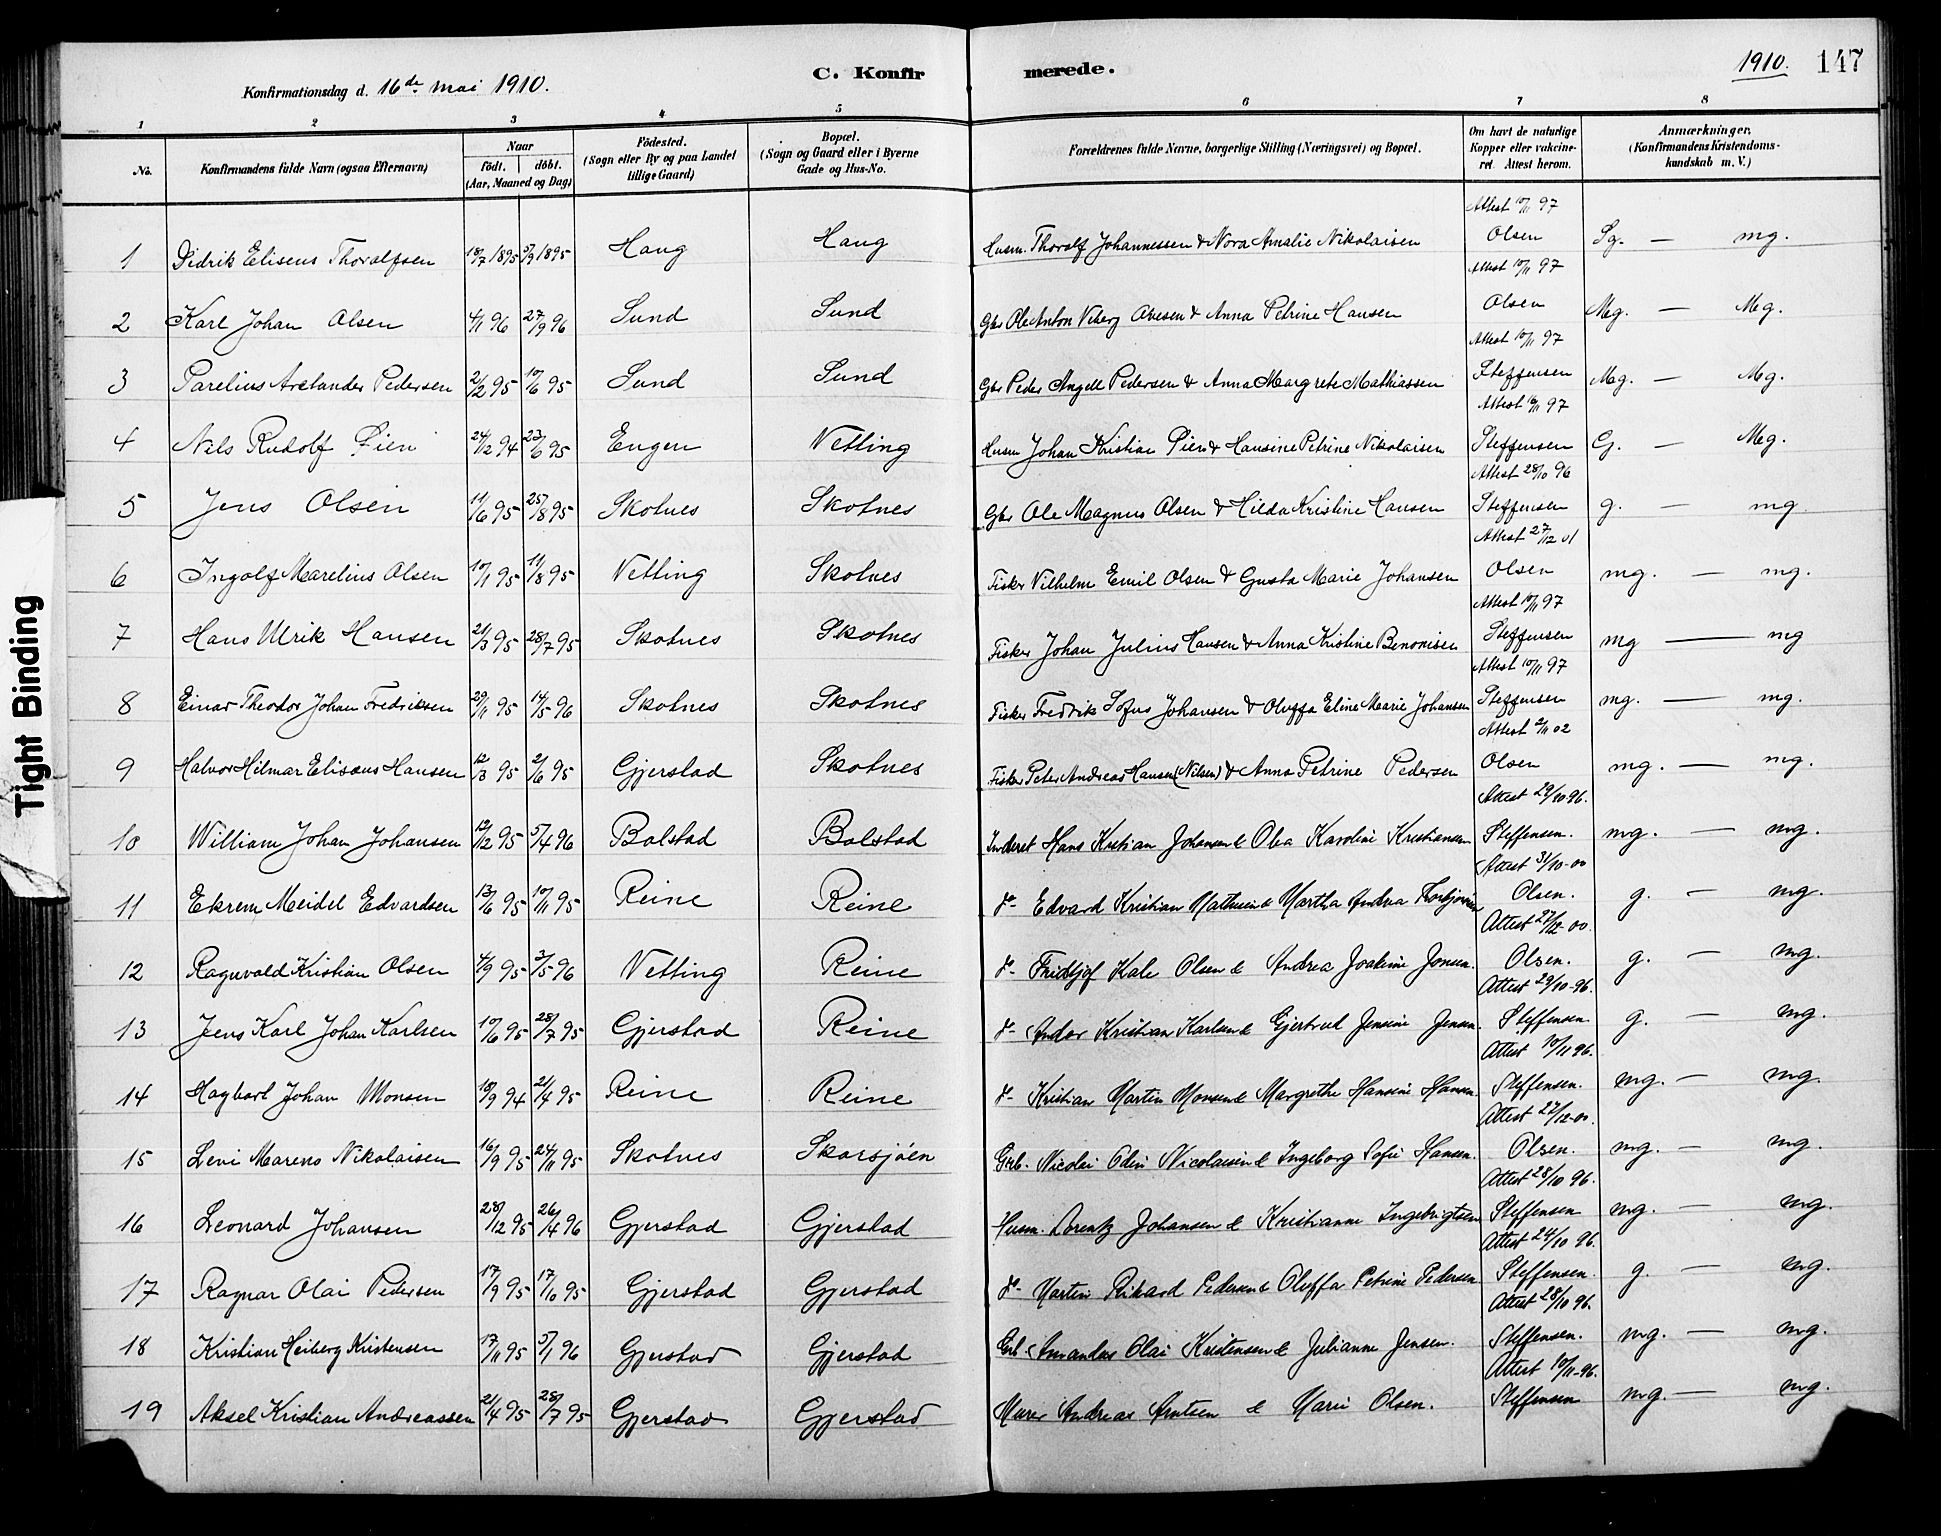 1910. 147
Konfirmationsdag d. 16de mai 1910. C. Konfirmerede.
1 2 3 4 5 6 7 8
No. Konfirmandens fulde Navn (ogsaa Efternavn) Naar født. døbt. (Aar, Maaned og Dag) Fødested. (Sogn eller By og paa Landet tillige Gaard) Bopæl. (Sogn og Gaard eller i Byerne Gade og Hus-No. Forældrenes fulde Navne, borgerlige Stilling (Næringsvei) og Bopæl. Om havt de naturlige Kopper eller vakcineret. Attest herom. Anmærkninger. (Konfirmandens Kristendomskundskab m. V.)
1 Didrik Eliseus Thoralfsen 18/7 1895 5/9 1895 Haug Haug Husm. Thoralf Johannessen & Nora Amalie Nikolaisen Attest 10/11 97 Olsen Sg. — mg.
2 Karl Johan Olsen 4/1 96 27/9 96 Sund Sund Gbr Ole Anton Viberg Ovesen & Anna Petrine Hansen Attest 10/11 97 Olsen Mg. — Mg.
3 Parelius Arelander Pedersen 2/2 95 10/6 95 Sund Sund Gbr Peder Angell Pedersen & Anna Margrete Mathiassen Attest 10/11 97 Steffensen Mg. — Mg.
4 Nils Rudolf Sien 24/12 94 23/6 95 Engen Netting Husm Johan Kristian Sien & Hansine Petrine Nikolaisen Attest 10/11 97 Steffensen G. — Mg.
5 Jens Olsen 11/6 95 25/8 95 Skotnes Skotnes Gbr Ole Magnus Olsen & Hilda Kristine Hansen Attest 28/10 96 Steffensen g. — mg
6 Ingolf Marelius Olsen 10/1 95 11/8 95 Netting Skotnes Fisker Vilhelm Emil Olsen & Gusta Marie Johansen Attest 27/12 01 Olsen mg. — mg.
7 Hans Ulrik Hansen 21/3 95 28/7 95 Skotnes Skotnes Fisker Johan Julius Hansen & Anna Kristine Benonisen Attest 10/11 97 Steffensen mg — mg
8 Einar Theodor Johan Fredriksen 29/11 95 14/5 96 Skotnes Skotnes Fisker Fredrik Sofus Johansen & Oluffa Eline Marie Johansen Attest 10/11 97 Steffensen mg. — mg.
9 Halvor Hilmar Elisæus Hansen 12/3 95 2/6 95 Gjerstad Skotnes Fisker Peter Andreas Hansen (Nilsen) & Anna Petrine Pedersen Attest 2/11 02 Olsen mg. — mg.
10 William Johan Johansen 12/12 95 5/4 96 Bolstad Bolstad Inderst Hans Kristian Johansen & Olea Karoline Kristiansen Attest 29/10 96. Steffensen. mg. — mg.
11 Ekrem Meidel Edvardsen 13/6 95 10/11 95 Reine Reine do Edvard Kristian Mathisen & Martha Andrea Attest 31/10-00 Olsen. g. — mg.
12 Ragnvald Kristian Olsen 4/9 95 3/5 96 Netting Reine do Fridtjof Kale Olsen & Andrea Joakime Jonsen. Attest 27/12-00. Olsen. g. — mg.
13 Jens Karl Johan Karlsen 10/6 95 28/7 95 Gjerstad Reine do Andor Kristian Karlsen & Gjertrud Jensine Jensen. Attest 29/10-96. Steffensen. g. — mg.
14 Hagbart Johan Monsen 10/9 94 21/4 95 Reine Reine do Kristian Martin Monsen & Margrethe Hansine Hansen Attest 10/11 96. Steffensen. mg. — mg.
15 Levi Marens Nikolaisen 16/9 95 24/11 95 Skotnes Skarsjøen Grb. Nicolai Odin Nicolaisen & Ingeborg Sofie Hansen. Attest 27/12-00. Olsen. mg. — mg.
16 Leonard Johansen 28/12 95 26/4 96 Gjerstad Gjerstad Husm. Lorentz Johansen & Kristianne Ingebrigtsen Attest 28/10 96. Steffensen mg. — mg.
17 Ragnar Olai Pedersen 17/9 95 17/10 95 Gjerstad Gjerstad do Martin Rikard Pedersen & Oluffa Petrine Pedersen Attest 24/10 96. Steffensen. g. — mg.
18 Kristian Heiberg Kristensen 17/11 95 5/1 96 Gjerstad Gjerstad Grb. Amandus Olai Kristensen & Julianne Jensen. Attest 28/10 96. Steffensen. mg. — mg.
19 Aksel Kristian Andreassen 21/4 95 28/7 95 Gjerstad Gjerstad Murer Andreas Arntsen & Marie Olsen. Attest 10/11-96. Steffensen mg. — mg.
Tight Binding